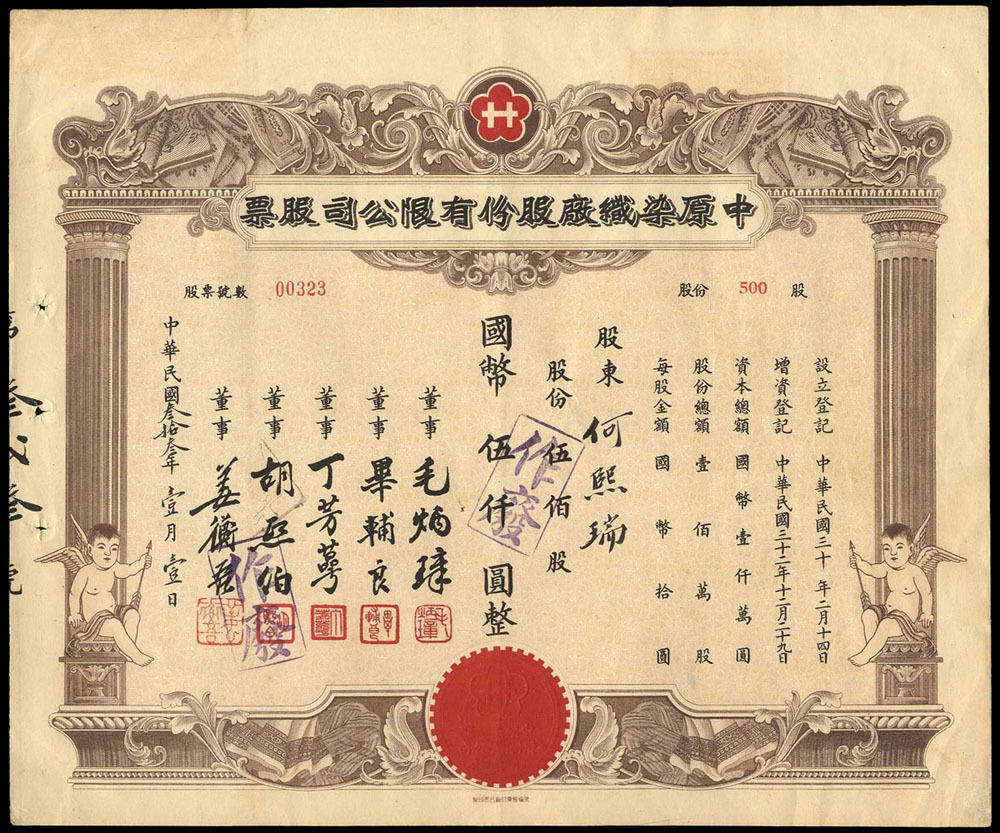 中原染織廠股份有限公司股票
股份 500 股
股票號數 00323
設立登記 中華民國三十年二月十四日
增資登記 中華民國三十二年十二月二十九日
資本總額 國幣壹仟萬圓
股份總額 壹佰萬股
每股金額 國幣拾圓
股東 何熙瑞
股份 伍佰 股
國幣 伍仟 圓整
作廢
董事 毛炳璋
董事 畢輔良
董事 丁芳蓴
董事 胡熙伯
董事
作廢
中華民國叁拾叁年壹月壹日
叁弍叁號